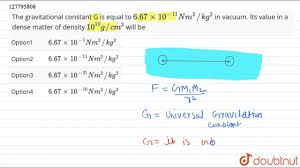 127795808
The gravitational constant G is equal to 6.67 × 10⁻¹¹ Nm²/kg² in vacuum. Its value in a
dense matter of density 10¹⁰ g/cm³ will be
Option1 6.67 × 10⁻¹ Nm²/kg²
Option2 6.67 × 10⁻¹¹ Nm²/kg²
Option3
Option4
F = GM₁M₂/r²
G = Universal Gravitation
constant
G = It is
doubtnut